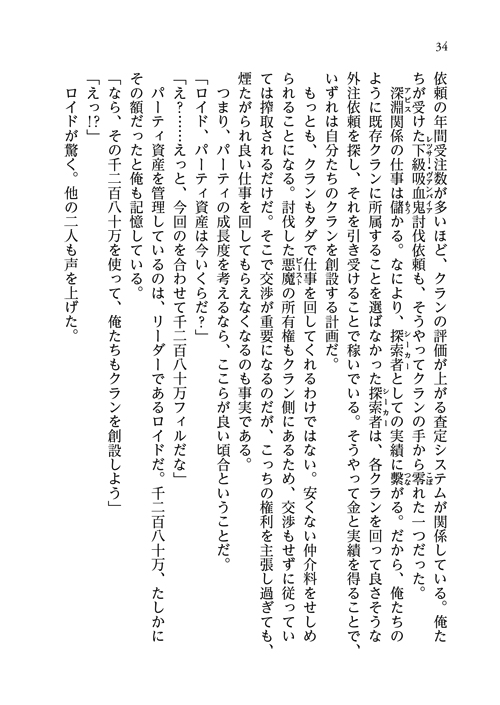 34
依頼の年間受注数が多いほど、クランの評価が上がる査定システムが関係している。俺た
ちが受けた下級吸血鬼討伐依頼も、そうやってクランの手から零れた一つだった。
レッサー・ヴァンパイア
こぼ
深淵関係の仕事は儲かる。なにより、探索者としての実績に繋がる。だから、俺たちの
アビス
もう
シーカー
つな
ように既存クランに所属することを選ばなかった探索者は、各クランを回って良さそうな
シーカー
外注依頼を探し、それを引き受けることで稼いでいる。そうやって金と実績を得ることで、
いずれは自分たちのクランを創設する計画だ。
もっとも、クランもタダで仕事を回してくれるわけではない。安くない仲介料をせしめ
られることになる。討伐した悪魔の所有権もクラン側にあるため、交渉もせずに従ってい
ビースト
ては搾取されるだけだ。そこで交渉が重要になるのだが、こっちの権利を主張し過ぎても、
煙たがられ良い仕事を回してもらえなくなるのも事実である。
つまり、パーティの成長度を考えるなら、ここらが良い頃合ということだ。
「ロイド、パーティ資産は今いくらだ？」
「え？……えっと、今回のを合わせて千二百八十万フィルだな」
パーティ資産を管理しているのは、リーダーであるロイドだ。千二百八十万、たしかに
その額だったと俺も記憶している。
「なら、その千二百八十万を使って、俺たちもクランを創設しよう」
「えっ!?」
ロイドが驚く。他の二人も声を上げた。